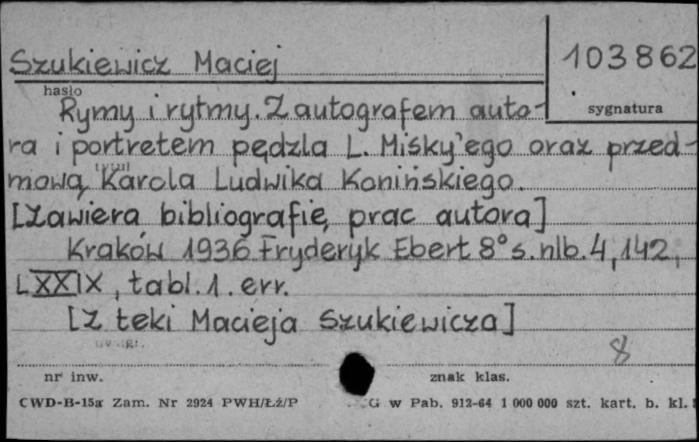 Szukiewicz Maciej
103862
hasło
sygnatura
Rymy i rytmy. Z autografem auto-
ra i portretem pędzla L. Miśky'ego oraz przed-
mową Karola Ludwika Konińskiego.
[Zawiera bibliografię prac autora]
Kraków 1936 Fryderyk Ebert 8° s. nlb. 4, 142,
LXXIX, tabl. 1. err.
[Z teki Macieja Szukiewicza]
8
nr inw.
znak klas.
CWD-B-15a Zam. Nr 2924 PWH/Łź/P
G w Pab. 912-64 1 000 000 szt. kart. b. kl.